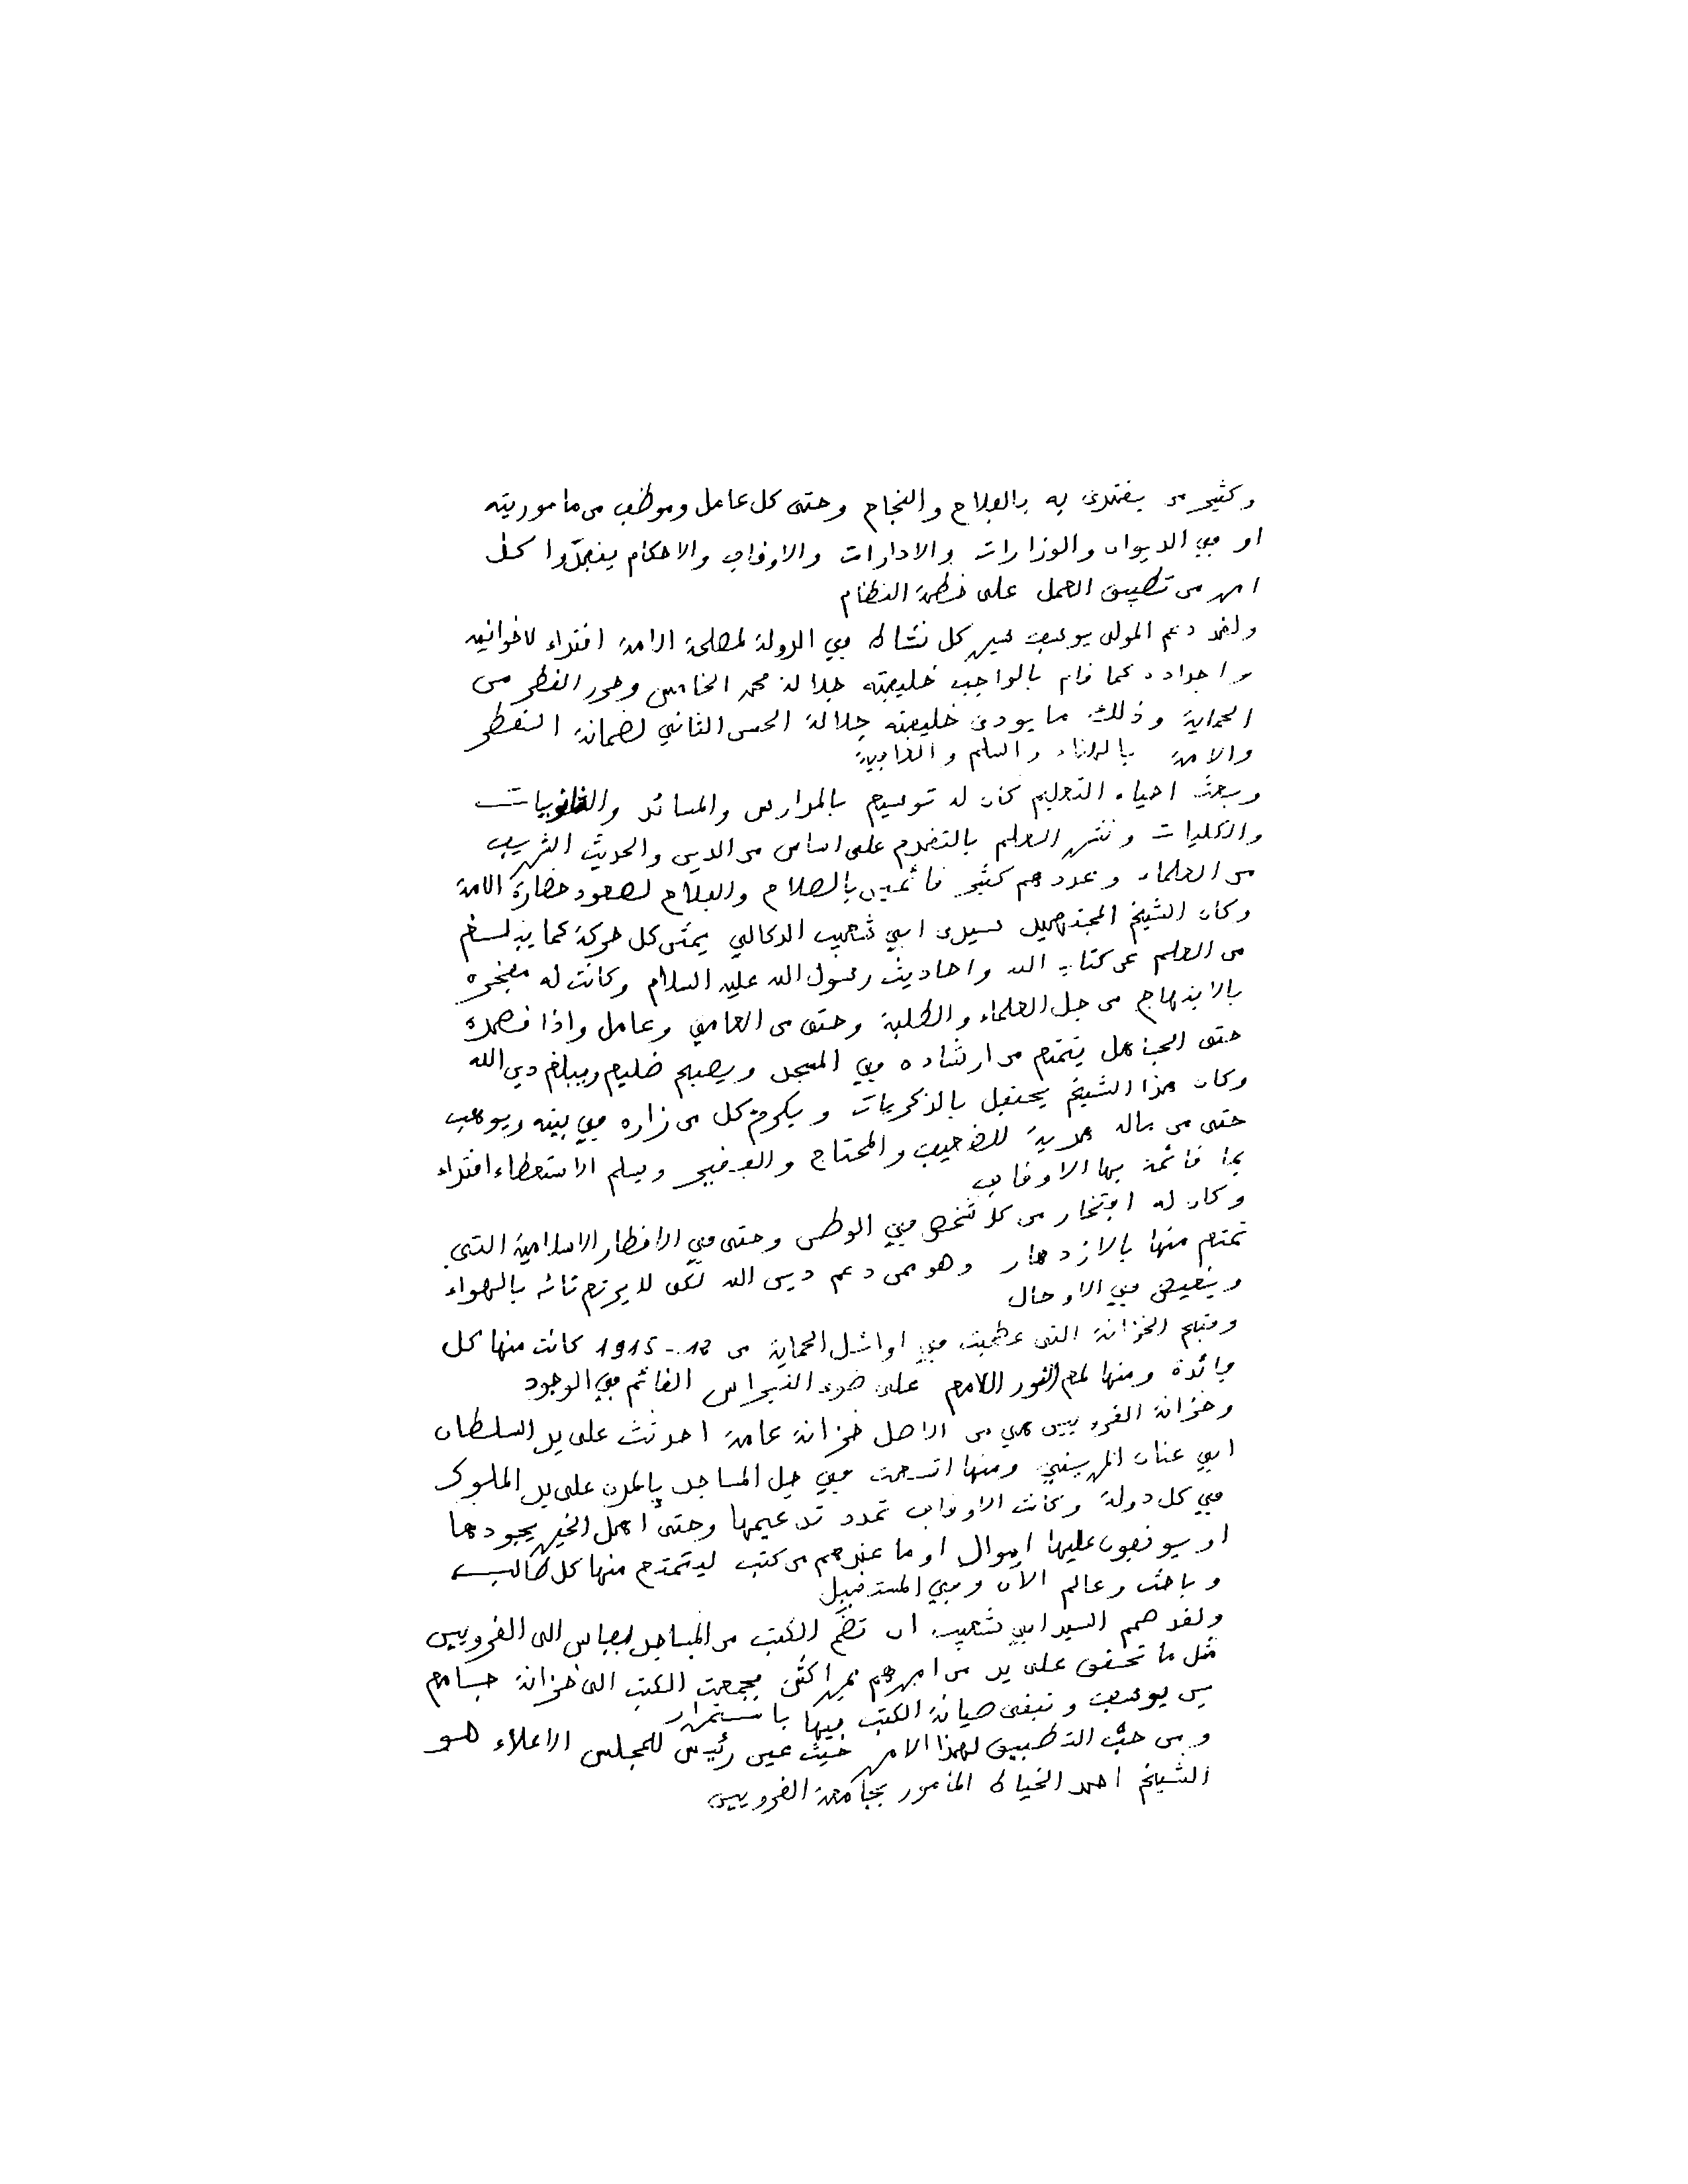 وكثير من يفتدى به بالفلاح والنجاح وحتى كل عامل وموظف من ماموريته
او في الديوان والوزارات والادارات والاوقاف والاحكام ينفذوا كل
امر من تطبيق العمل على خطة النظام
ولقد دعم المولى يوسف سير كل نشاط في الدولة لمصلحة الامة اقتداء لاخوانه
واجداده كما قام بالواجب خليفته جلالة محمد الخامس وحرر القطر من
الحماية وذلك ما يودى خليفته جلالة الحسن الثاني لضمانة القطر
والامة بالهناء والسلم و
وبعث احياء التعليم كان له توسيع بالمدارس والمسائد والثانويات
والكليات ونشر العلم بالتقدم على اساس من الدين والحديث الشريف
من العلماء وعددهم كثير قائمين بالصلاح والفلاح لصعود حضارة الامة
وكان الشيخ سيدى ابي شعيب الدكالي يمثى كل حركة كما يبلغ
من العلم عن كتاب الله واحاديث رسول الله عليه السلام وكانت له مفخره
بالابتهاج من جل العلماء والطلبة وحتى من العامي وعامل واذا قصده
حتى الجاهل يتمتع من ارشاده في المسجد ويصبح ضليع ويبلغ دين الله
وكان هذا الشيخ يحتفل بالذكريات ويكرم كل من زاره في بيته ويوهب
حتى من ماله هدية للضعيف والمحتاج والفقير ويسلم الاستعطاء اقتداء
بما قائمة بها الاوقاف
وكان له افتخار من كل شخص في الوطن وحتى في الاقطار الاسلامية التي
تمتع منها بالازدهار وهو ممن دعم دين الله لكى لا بالهواء
ويعيش في الاوحال
وفتح الخزانة التى عظمت في اوائل الحماية من 18 - 1915 كانت منها كل
فائدة ومنها لمع النور اللامع على ضوء النبراس القائم في الوجود
وخزانة القرويين هي من الاصل خزانة عامة احدثت على يد السلطان
ابي عنان المريني ومنها اتسعت في جل المساجد بالمدن على يد الملوك
في كل دولة وكانت الاوقاف تمدد تدعيمها وحتى اهل الخير يجودها
او سيوقفون عليها اموال او ما عندهم من كتب ليتمتع منها كل طالب
وباحث وعالم الآن وفي المستقبل
ولقد همم السيد ابي شعيب ان تضم الكتب من المساجد بفاس الى القرويين
مثل ما تحقق على يد من امرهم بمراكش فجمعت الكتب الى خزانة جامع
بن يوسف وتبقى صيانة الكتب فيها باستمرار
ومن حب التطبيق لهذا الامر حيث عين رئيس للمجلس الاعلاء هو
الشيخ احمد الخياط المأمور بجامعة القرويين